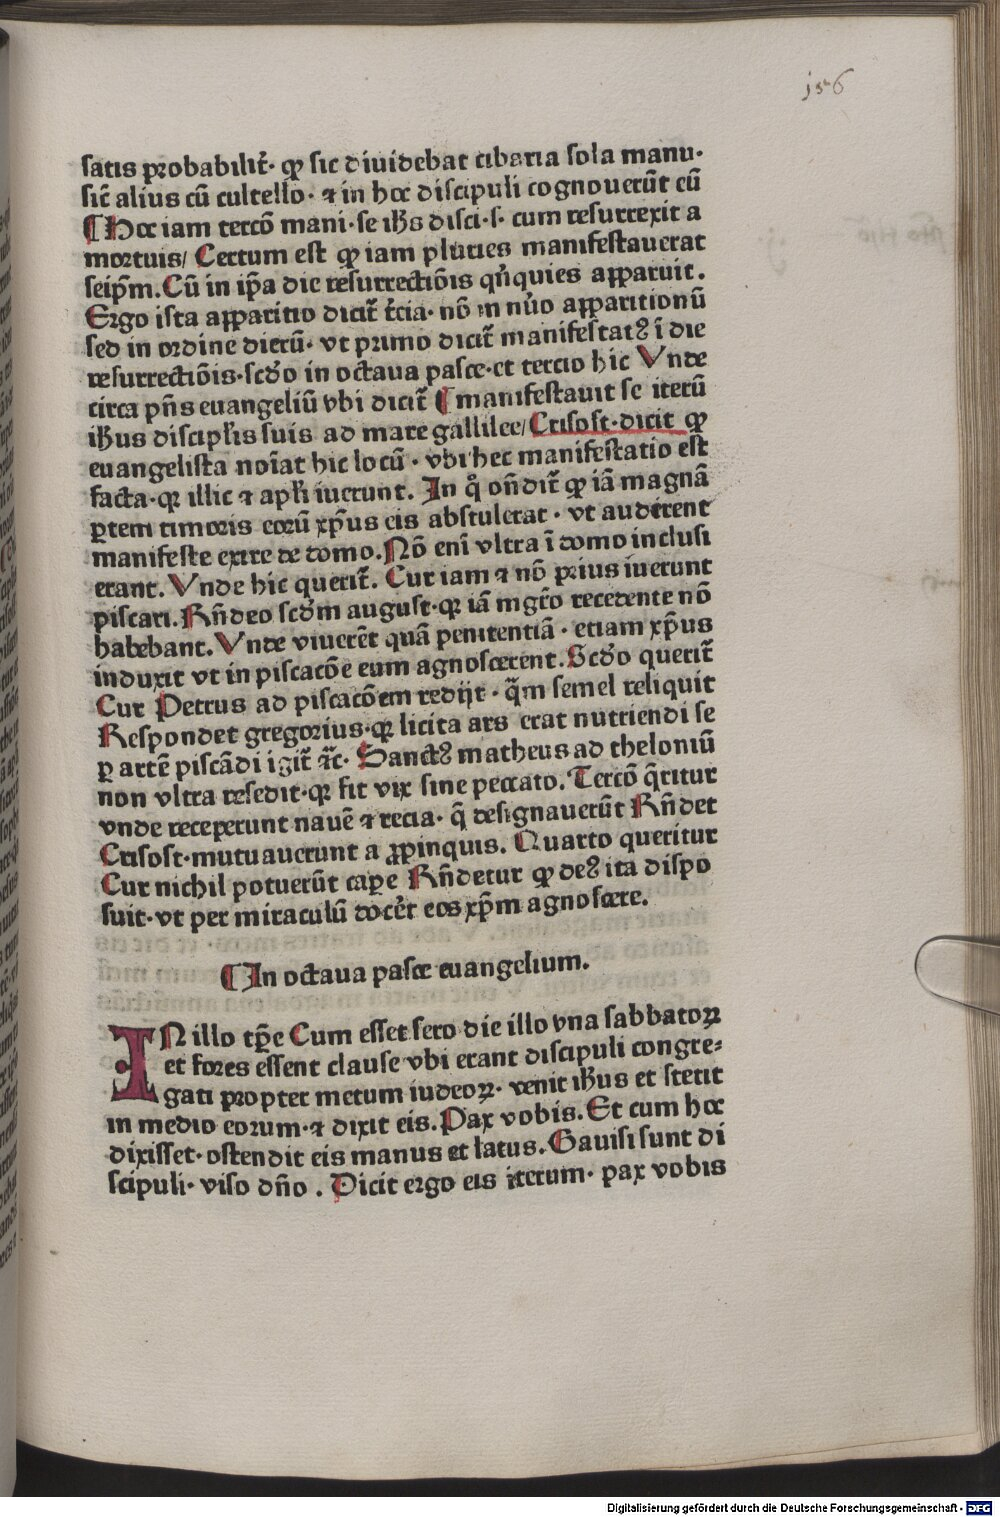 156
satis probabilit̄· qƺ sic diuidebat cibaria sola manu·
sic̄ alius cū cultello· ⁊ in hoc discipuli cognouerūt eū
¶ Hoc iam tercō mani·se ih̄s disci·s· cum resurrexit a
mortuis/ Certum est qƺ iam pluries manifestauerat
seip̄m. Cū in ip̄a die resurrectiōis qn̄quies apparuit.
Ergo ista apparitio dicit̄ t̄cia· nō in nūo apparitionū
sed in ordine dierū· vt primo dicit̄ manifestatꝰ ī die
resurrectiōis·scd̄o in octaua pasce·et tercio hic Vnde
circa pn̄s euangeliū vbi dicit̄ ¶ manifestauit se iterū
ih̄us discipl̄is suis ad mare gallilee/ Crisost·dicit qƺ
euangelista noīat hic locū· vbi hec manifestatio est
facta·qꝛ illic ⁊ apl̄i iuerunt. In qͦ on̄dit̄ qƺ iā magnā
ꝑtem timoris eorū xp̄us eis abstulerat· vt auderent
manifeste exire de domo. Nō enī vltra ī domo inclusi
erant. Vnde hic querit̄. Cur iam ⁊ nō prius iuerunt
piscari. Rn̄deo scd̄m august·qꝛ iā mgr̄o recedente nō
habebant. Vnde viuerēt quā penitentiā· etiam xp̄us
induxit vt in piscacōe eum agnoscerent. Scd̄o querit̄
Cur Petrus ad piscacōem redijt· q̄m semel reliquit
Respondet gregorius·qꝛ licita ars erat nutriendi se
ꝑ artē piscādi igit̄ ⁊c̄· Sanctꝰ matheus ad theloniū
non vltra resedit·qꝛ fit vix sine peccato. Tercō q̄ritur
vnde receperunt nauē ⁊ recia· q̄ designauerūt Rn̄det
Crisost·mutuauerunt a ꝓpinquis. Quarto queritur
Cur nichil potuerūt caꝑe Rn̄detur qƺ deꝰ ita dispo
suit·vt per miraculū docēt eos xp̄m agnoscere.
¶ In octaua pasce euangelium.
IN illo tp̄e Cum esset sero die illo vna sabbatoꝝ
et fores essent clause vbi erant discipuli congre⸗
gati propter metum iudeoꝝ· venit ih̄us et stetit
in medio eorum·⁊ dixit eis. Pax vobis. Et cum hoc
dixisset· ostendit eis manus et latus. Gauisi sunt di
scipuli· viso dn̄o . Dicit ergo eis iterum· pax vobis
Digitalisierung gefördert durch die Deutsche Forschungsgemeinschaft - DFG